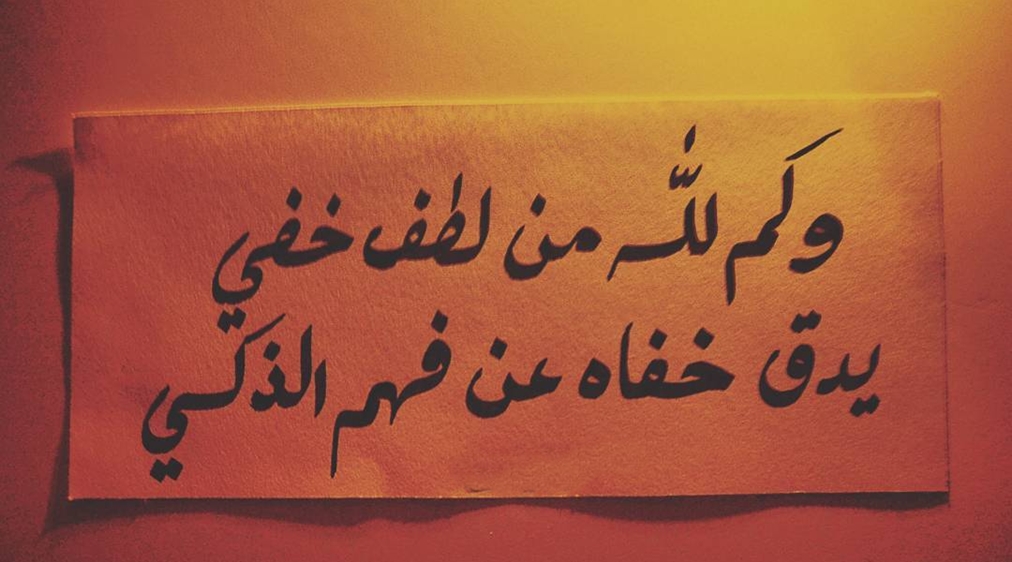 وكم للّه من لطف خفي
يدق خفاه عن فهم الذكي